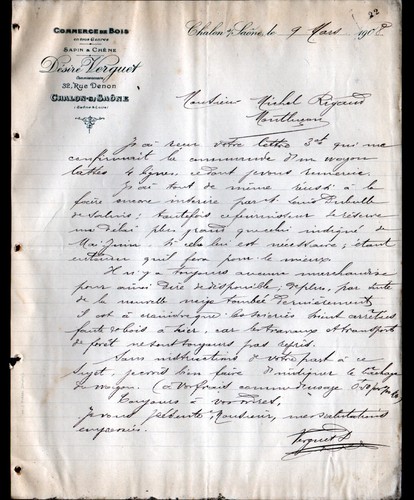 22
COMMERCE DE BOIS
EN TOUS GENRES
SAPIN & CHÊNE
Désiré Verguet
32, Rue Denon
CHALON-S/SAÔNE
(SAÔNE & LOIRE)
Chalon s/ Saône, le 9 Mars 1908
Monsieur Michel Rigaud
Montluçon
J'ai reçu votre lettre 3 ct qui me
confirmait la commande d'un wagon
lattes 4 lignes, ce dont je vous remercie.
J'ai tout de même réussi à la
faire encore inscrire par St Louis
de Salins; toutefois ce fournisseur se réserve
un délai plus grand que celui indiqué de
Mai Juin, si cela lui est nécessaire; étant
entendu qu'il fera pour le mieux.
Il n'y a toujours aucune marchandise
pour ainsi dire de disponible, de plus, par suite
de la nouvelle neige tombée dernièrement,
il est à craindre que les scieries soient arrêtées
faute de bois à scier, car les travaux & transports
de forêt ne sont toujours pas repris.
Sans instructions de votre part à ce
sujet, je crois bien faire d'indiquer le bâchage
du wagon. (à vos frais comme d'usage
Toujours à vos ordres,
je vous présente, Monsieur, mes salutations
empressées.
Verguet D.